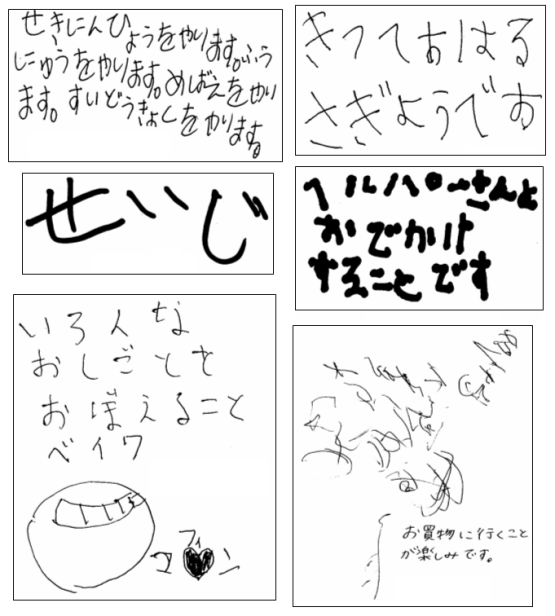 せきにんひょうをやります。ふう
にゅうをやります。めばえをやり
ます。すいどうきょくをやります。
きっておはる
さぎょうです
せいじ
ヘルパーさんと
おでかけ
することです
いろんな
おしごとを
おぼえること
ベイワ
マフィン
お買物に行くこと
が楽しみです。